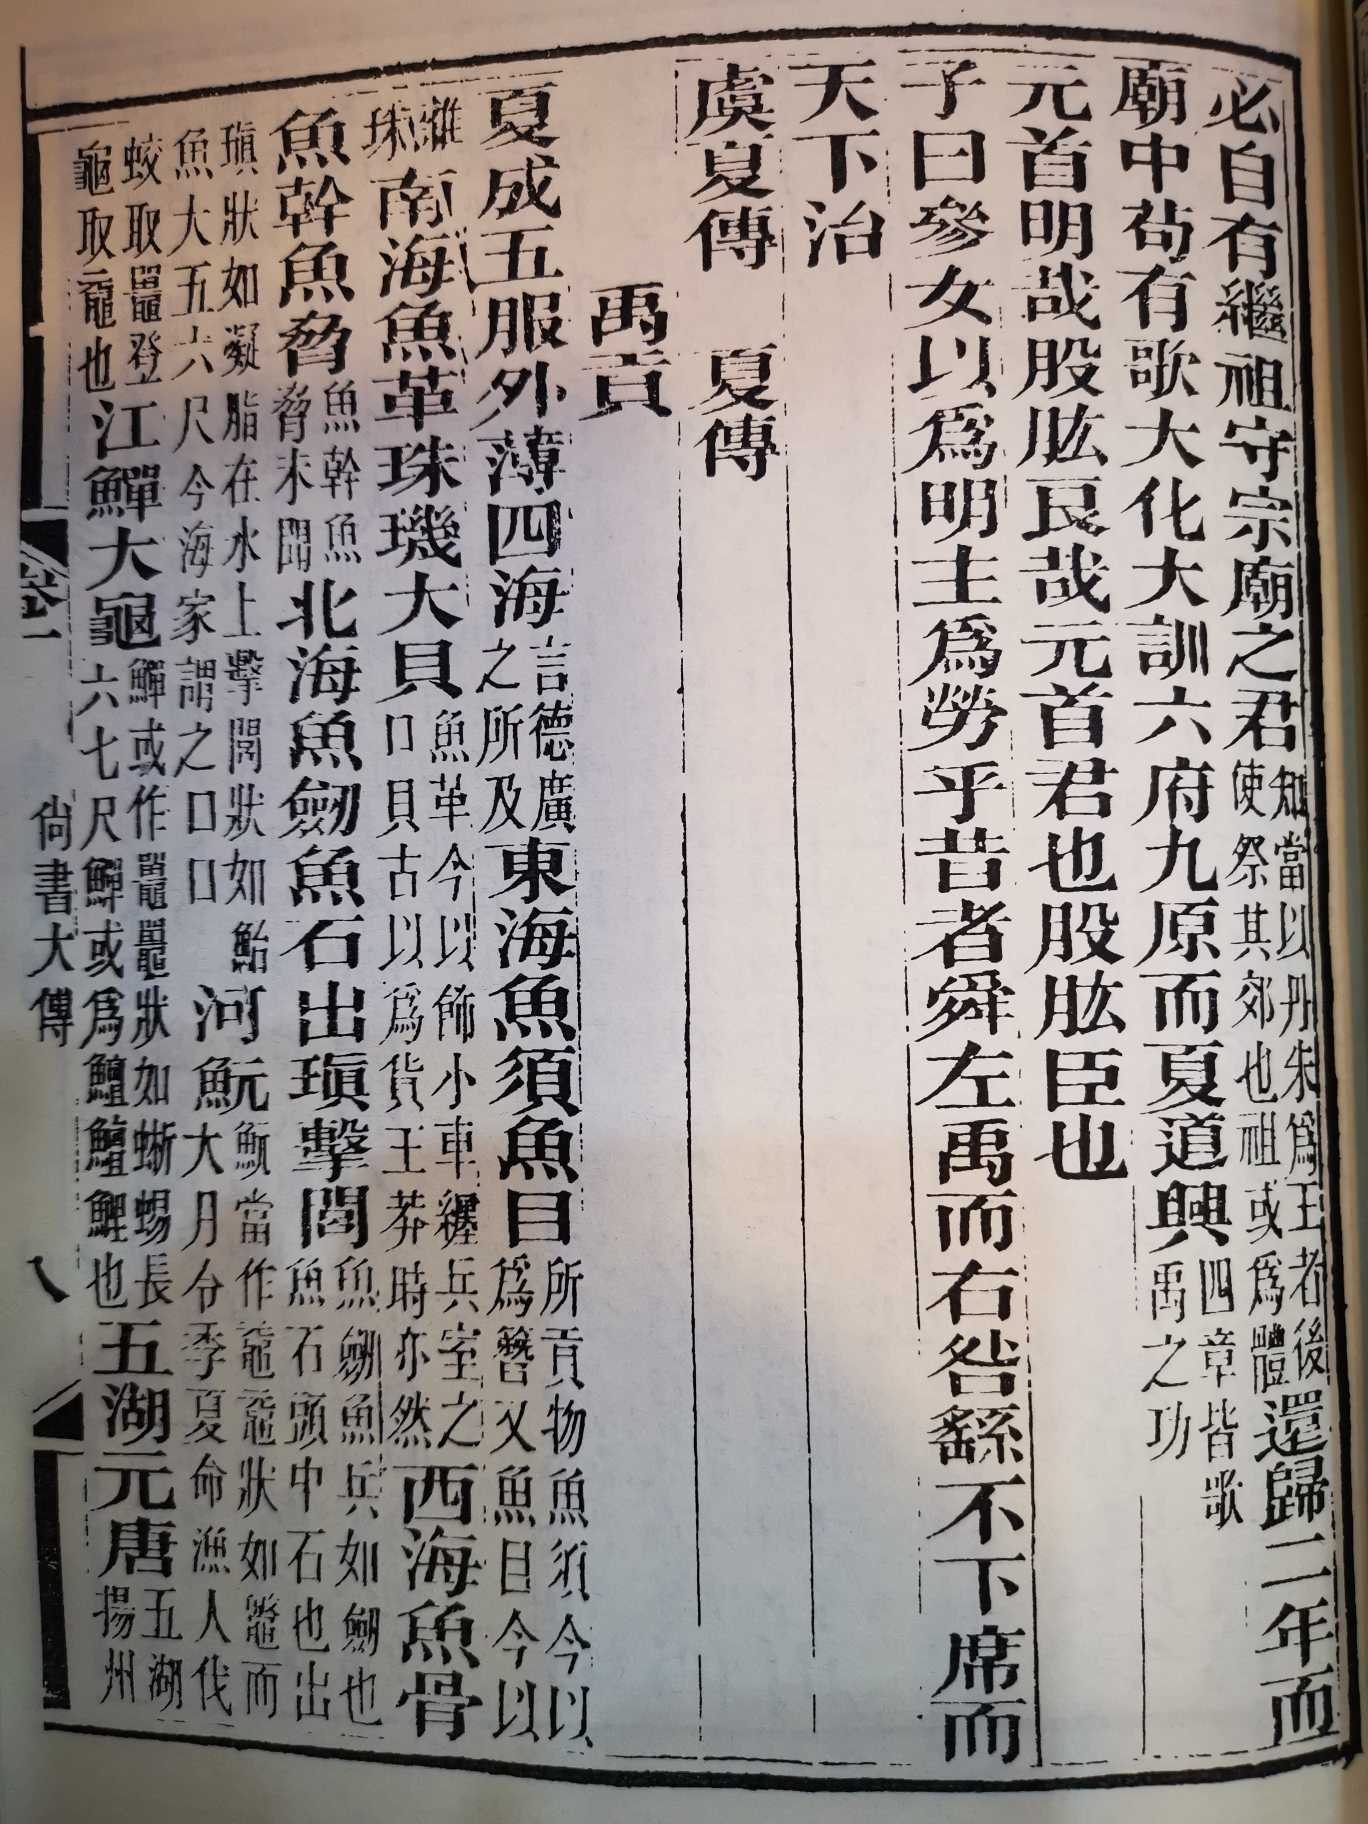 必自有繼祖守宗廟之君知當以丹朱爲王者後使祭其郊也祖或爲體還歸二年而
廟中苟有歌大化大訓六府九原而夏道興四章皆歌禹之功
元首明哉股肱良哉元首君也股肱臣也
子曰參女以爲明主爲勞乎昔者舜左禹而右咎繇不下席而
天下治
虞夏傳 夏傳
禹貢
夏成五服外薄四海言德廣之所及東海魚須魚目所貢物魚須今以爲簪又魚目今以
雜珠南海魚革珠璣大貝魚革今以飾小車纏兵室之口貝古以爲貨王莽時亦然西海魚骨
魚幹魚脅魚幹魚脅未聞北海魚劒魚石出瑱擊閭魚劒魚兵如劒也魚石頭中石也出
瑱狀如凝脂在水上擊閭狀如鮐魚大五六尺今海家謂之口口河魭魭當作黿黿狀如鼈而魚大月令季夏命漁人伐
蛟取鼉登龜取黿也江鱓大龜鱓或作鼉鼉狀如蜥蜴長六七尺鱓或爲鱣鱣鯉也五湖元唐五湖揚州
卷一
尙書大傳
八